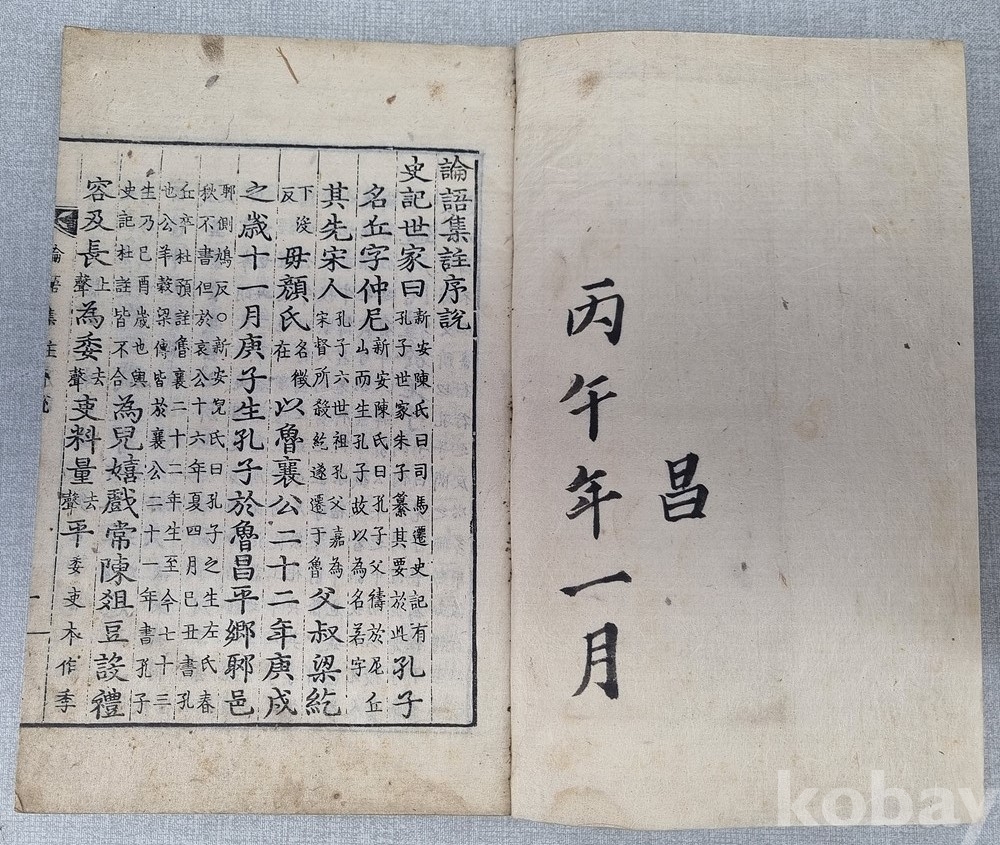 昌
丙午年一月
論語集註序說
史記世家曰新安陳氏曰司馬遷史記有孔子世家朱子纂其要於此孔子
名丘字仲尼新安陳氏曰孔子父禱於尼丘山而生孔子故以為名若字
其先宋人孔子六世祖孔父嘉為宋督所殺紇遂遷于魯父叔梁紇
下沒反母顏氏名徵在以魯襄公二十二年庚戌
之歲十一月庚子生孔子於魯昌平鄉郰邑
郰側鳩反○新安倪氏曰孔子之生左氏春秋不書但於哀公十六年夏四月己丑書孔
丘卒杜預註魯襄二十二年生至今七十三也公羊穀梁傳皆於襄公二十一年書孔子
生乃己酉歲也與史記杜註皆不合為兒嬉戲常陳俎豆設禮
容及長上聲為委去聲吏料量去聲平委吏本作季
論語集註序說
一
kobay